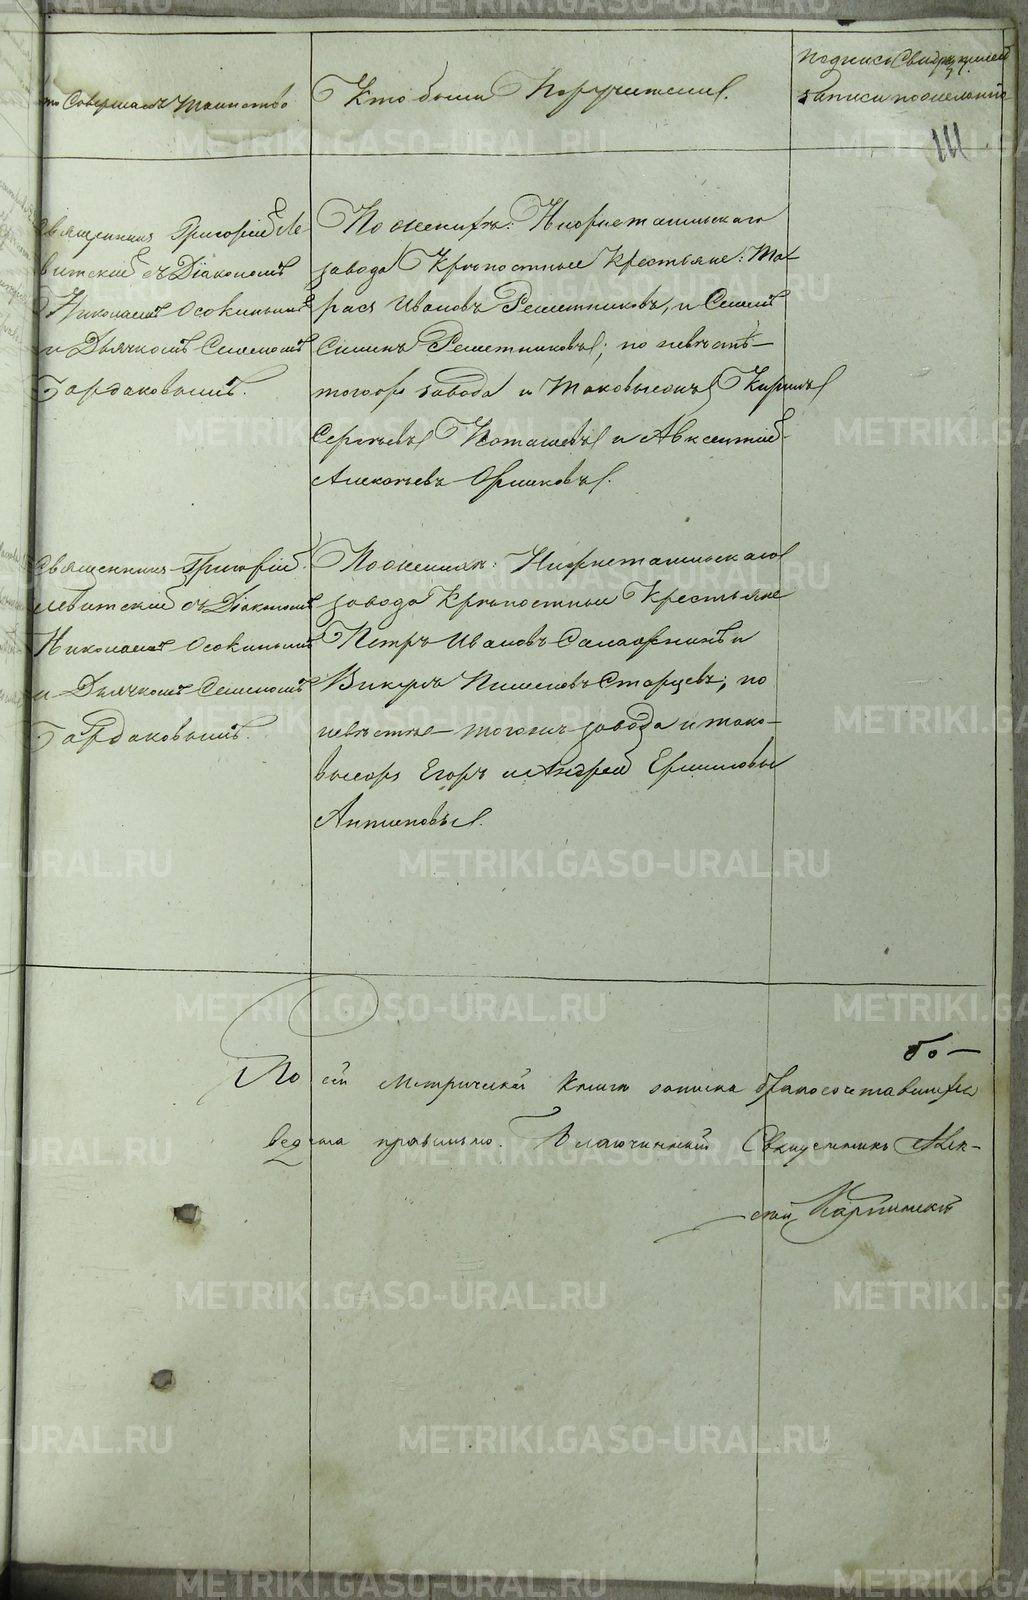 Совершалъ Таинство
Кто были Поручители.
Подпись Свидѣтелей
записи по желанію
111
Священникъ Григорій Ле-
витскій съ Діакономъ
Николаемъ Осокинымъ
и Дьячкомъ Семеномъ
Гардаковымъ.
По женихѣ: Нижнетагильскаго
завода Крѣпостные Крестьяне: Та-
расъ Ивановъ Решетниковъ, и Семенъ
Решетниковъ; по невѣстѣ
тогожъ завода и таковыежъ Кирилъ
Сергѣевъ и Авксентій
Алексѣевъ
Священникъ Григорій
Левитскій съ Діакономъ
Николаемъ Осокинымъ
и Дьячкомъ Семеномъ
Гардаковымъ.
По женихѣ: Нижнетагильскаго
завода Крѣпостные Крестьяне
Петръ Ивановъ и
Викулъ Пименовъ Старцевъ; по
невѣстѣ тогожъ завода и тако-
выежъ Егоръ и Андрей Ермиловы
Антиповы.
По сей Метрической Книгѣ записка бракосочетавшихся
ведена правильно. Благочинный Священникъ Алек-
сѣй Карпинскій
METRIKI.GASO-URAL.RU